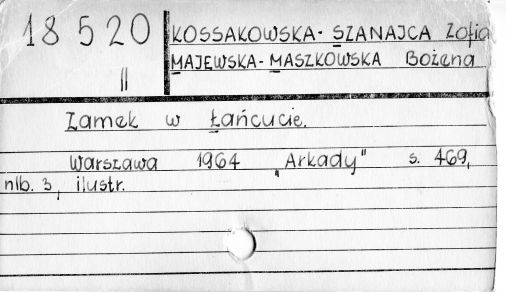 18 520
II
KOSSAKOWSKA-SZANAJCA Zofia
MAJEWSKA-MASZKOWSKA Bożena
Zamek w Łańcucie.
Warszawa 1964 „Arkady" s. 469,
nlb. 3, ilustr.